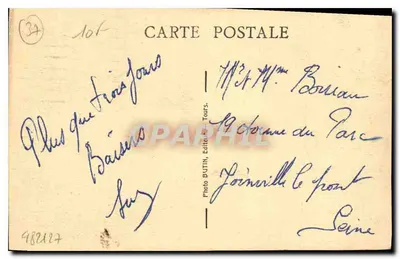 37
10f
CARTE POSTALE
Plus que trois jours
Baisers
Suzy
Mr et Mme Boireau
19 avenue du Parc
Joinville le pont
Seine
Photo DUTIN, Editeur, Tours.
CPAPHIL
482127